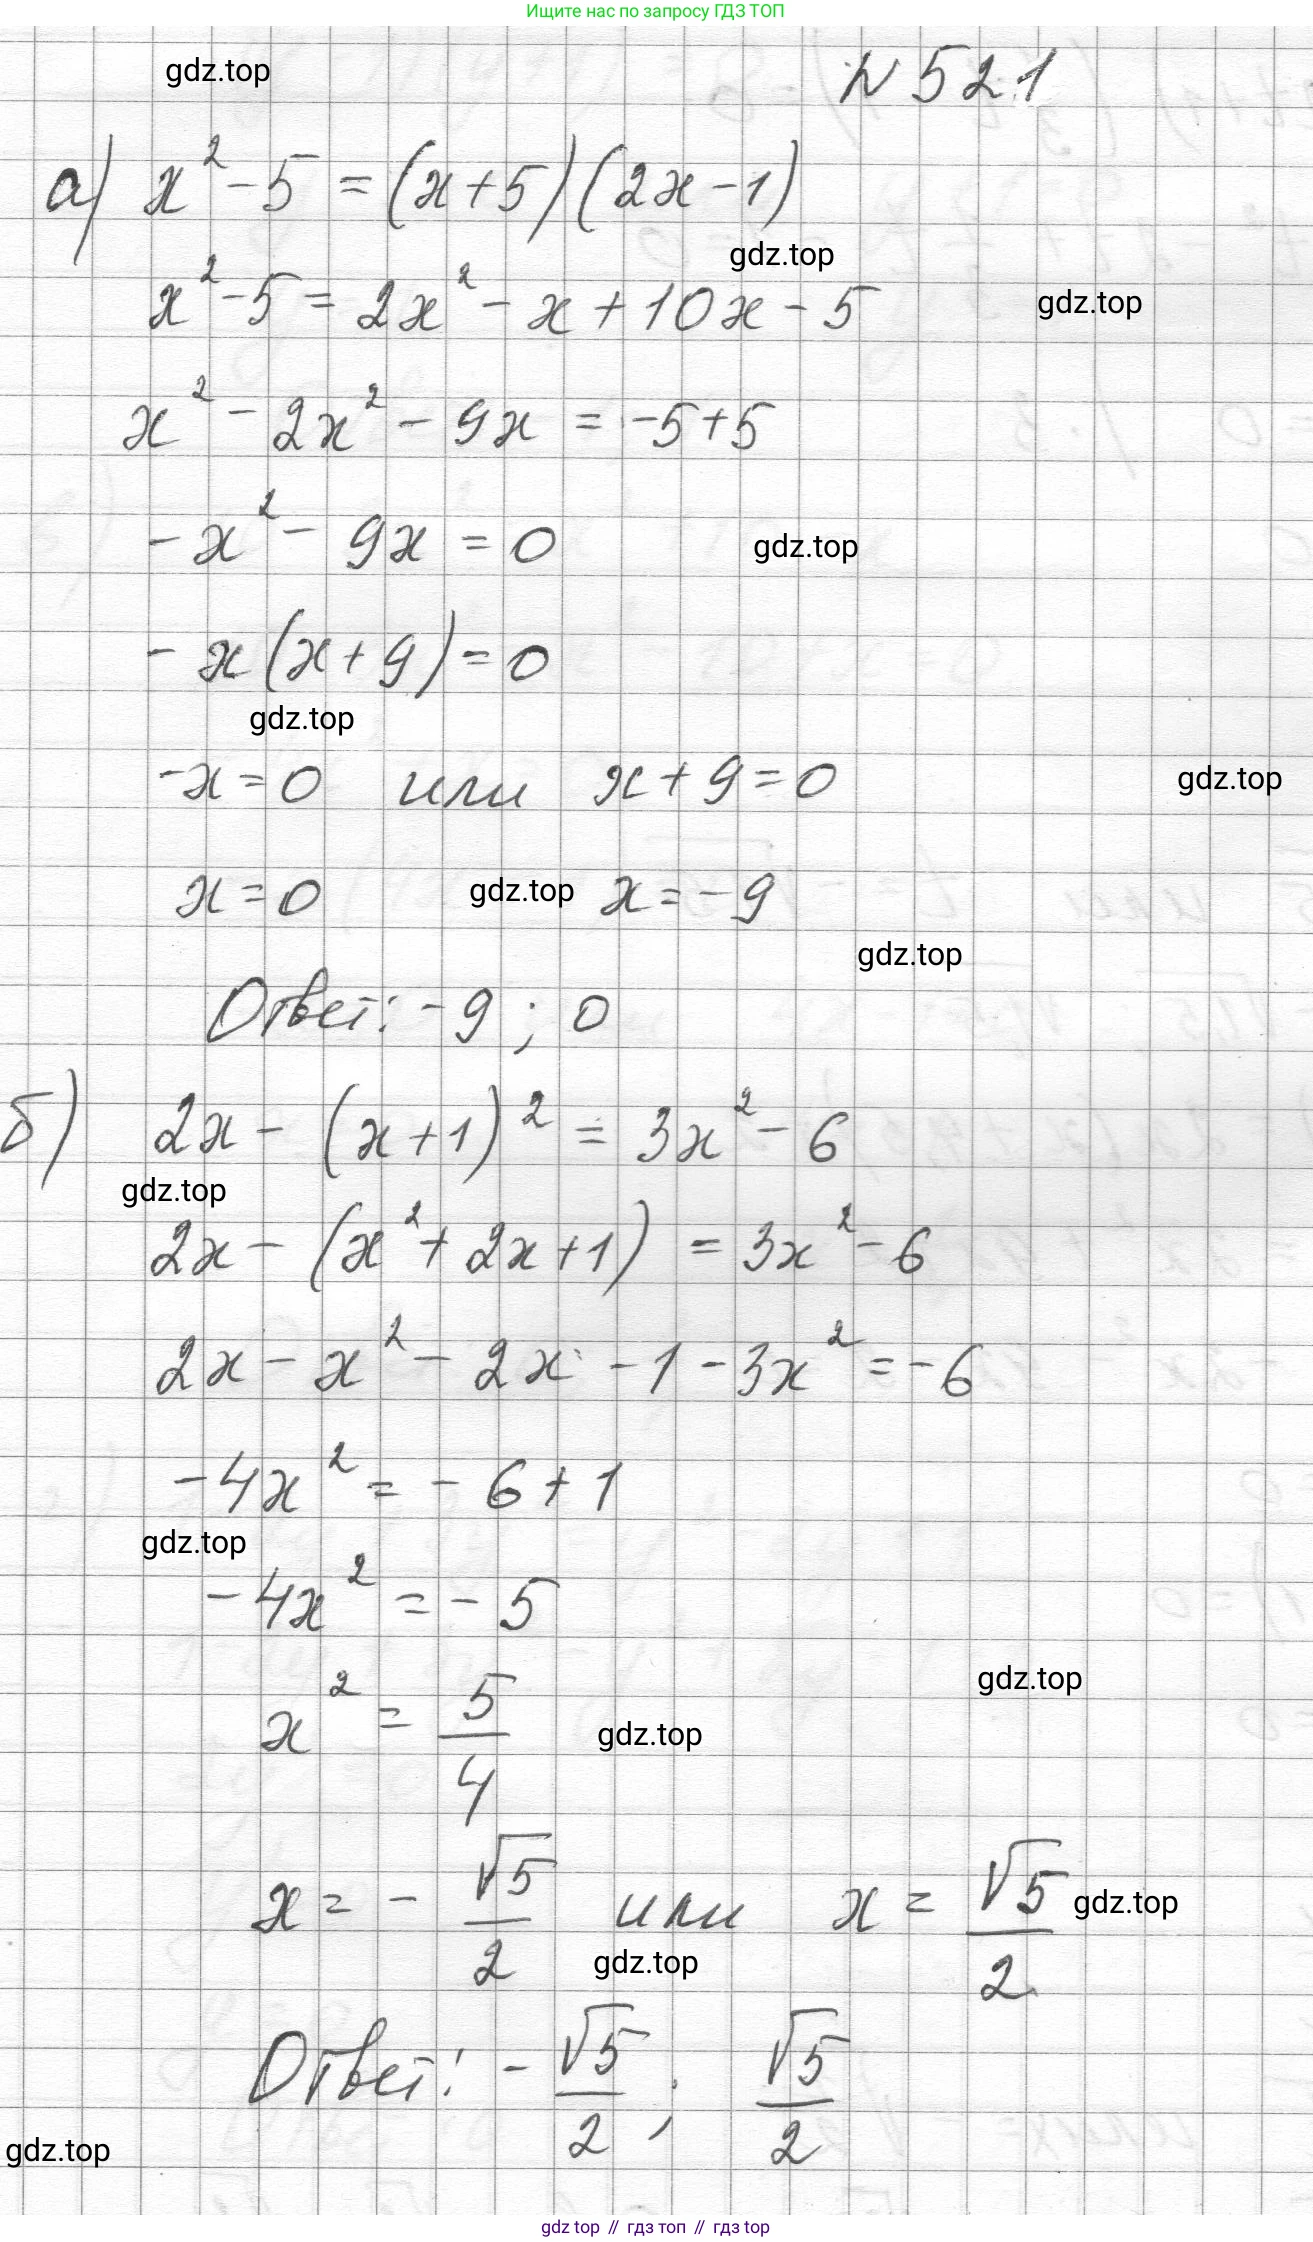 Ищите нас по запросу ГДЗ ТОП
gdz.top
№ 521
а) x² - 5 = (x+5)(2x-1)
gdz.top
x² - 5 = 2x² - x + 10x - 5
gdz.top
x² - 2x² - 9x = -5+5
-x² - 9x = 0
gdz.top
-x(x+9)=0
gdz.top
-x=0 или x+9=0
gdz.top
x=0 gdz.top x=-9
gdz.top
Ответ: -9 ; 0
б) 2x - (x+1)² = 3x² - 6
gdz.top
2x - (x² + 2x + 1) = 3x² - 6
2x - x² - 2x - 1 - 3x² = -6
-4x² = -6+1
gdz.top
-4x² = -5
gdz.top
x² = 5/4
gdz.top
x = - √5/2 или x = √5/2
gdz.top
gdz.top
Ответ: - √5/2 ; √5/2
gdz.top
gdz top // гдз топ // гдз top